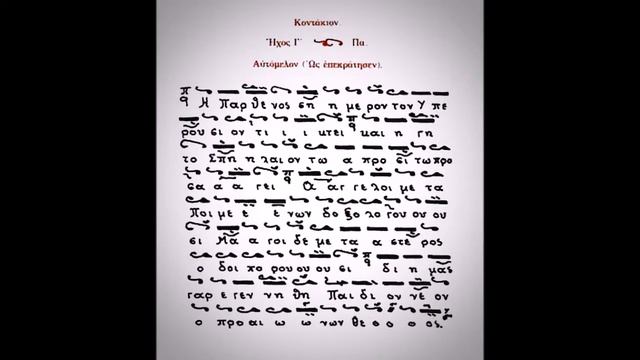 Κοντάκιον.
Ἦχος Γ΄ Πα.
Αὐτόμελον (Ὡς ἐπεκράτησεν).
Η Παρ θε νος ση η με ρον τον Υ πε
ρου σι ον τι ι ι κτει και η γη
το Σπη η λαι ον τω α προ σι τω προ
σα α α γει Α αγ γε λοι με τα
Ποι με ε ε νων δο ξο λο γου ου ου
σι Μα α γοι δε με τα α στε ρος
ο δοι πο ρου ου ου σι δι η μας
γαρ ε γεν νη θη Παι δι ον νε ον
ο προ αι ω ω νων θε ο ο ος.